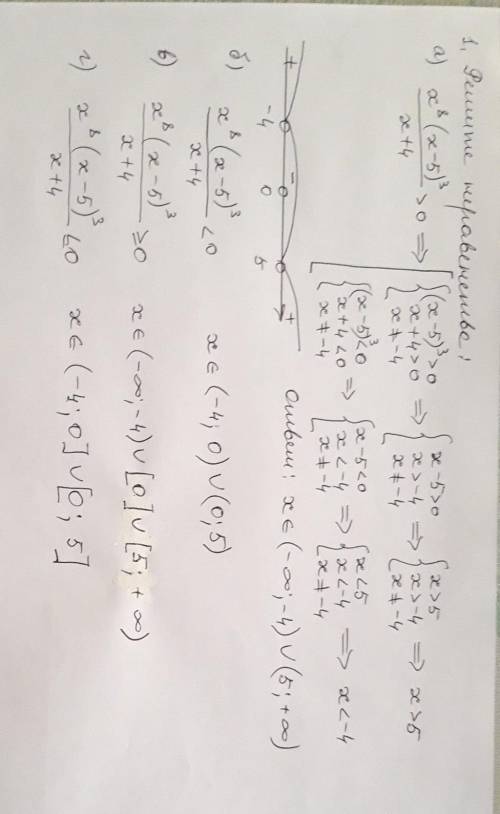 1, Решите неравенство:
а) x⁸(x-5)³/(x+4) > 0 ⇒ [ { (x-5)³>0 x+4>0 x≠-4 ⇒ { x-5>0 x>-4 x≠-4 ⇒ { x>5 x>-4 x≠-4 ⇒ x>5
{ (x-5)³<0 x+4<0 x≠-4 ⇒ { x-5<0 x<-4 x≠-4 ⇒ { x<5 x<-4 x≠-4 ⇒ x<-4
+ -4 - 0 5 + Ответ: x∈(-∞;-4)∪(5;+∞)
б) x⁸(x-5)³/(x+4) <0 x∈(-4;0)∪(0;5)
в) x⁸(x-5)³/(x+4) ≥0 x∈(-∞;-4)∪[0]∪[5;+∞)
г) x⁸(x-5)³/(x+4) ≤0 x∈(-4;0]∪[0;5]